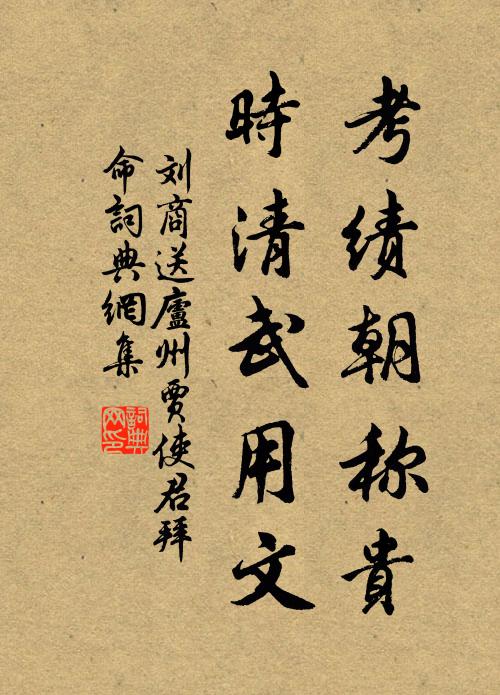 考绩朝称貴
時清武用文
刘商送廬州賈使君拜
命詞典網集
詞典
网印